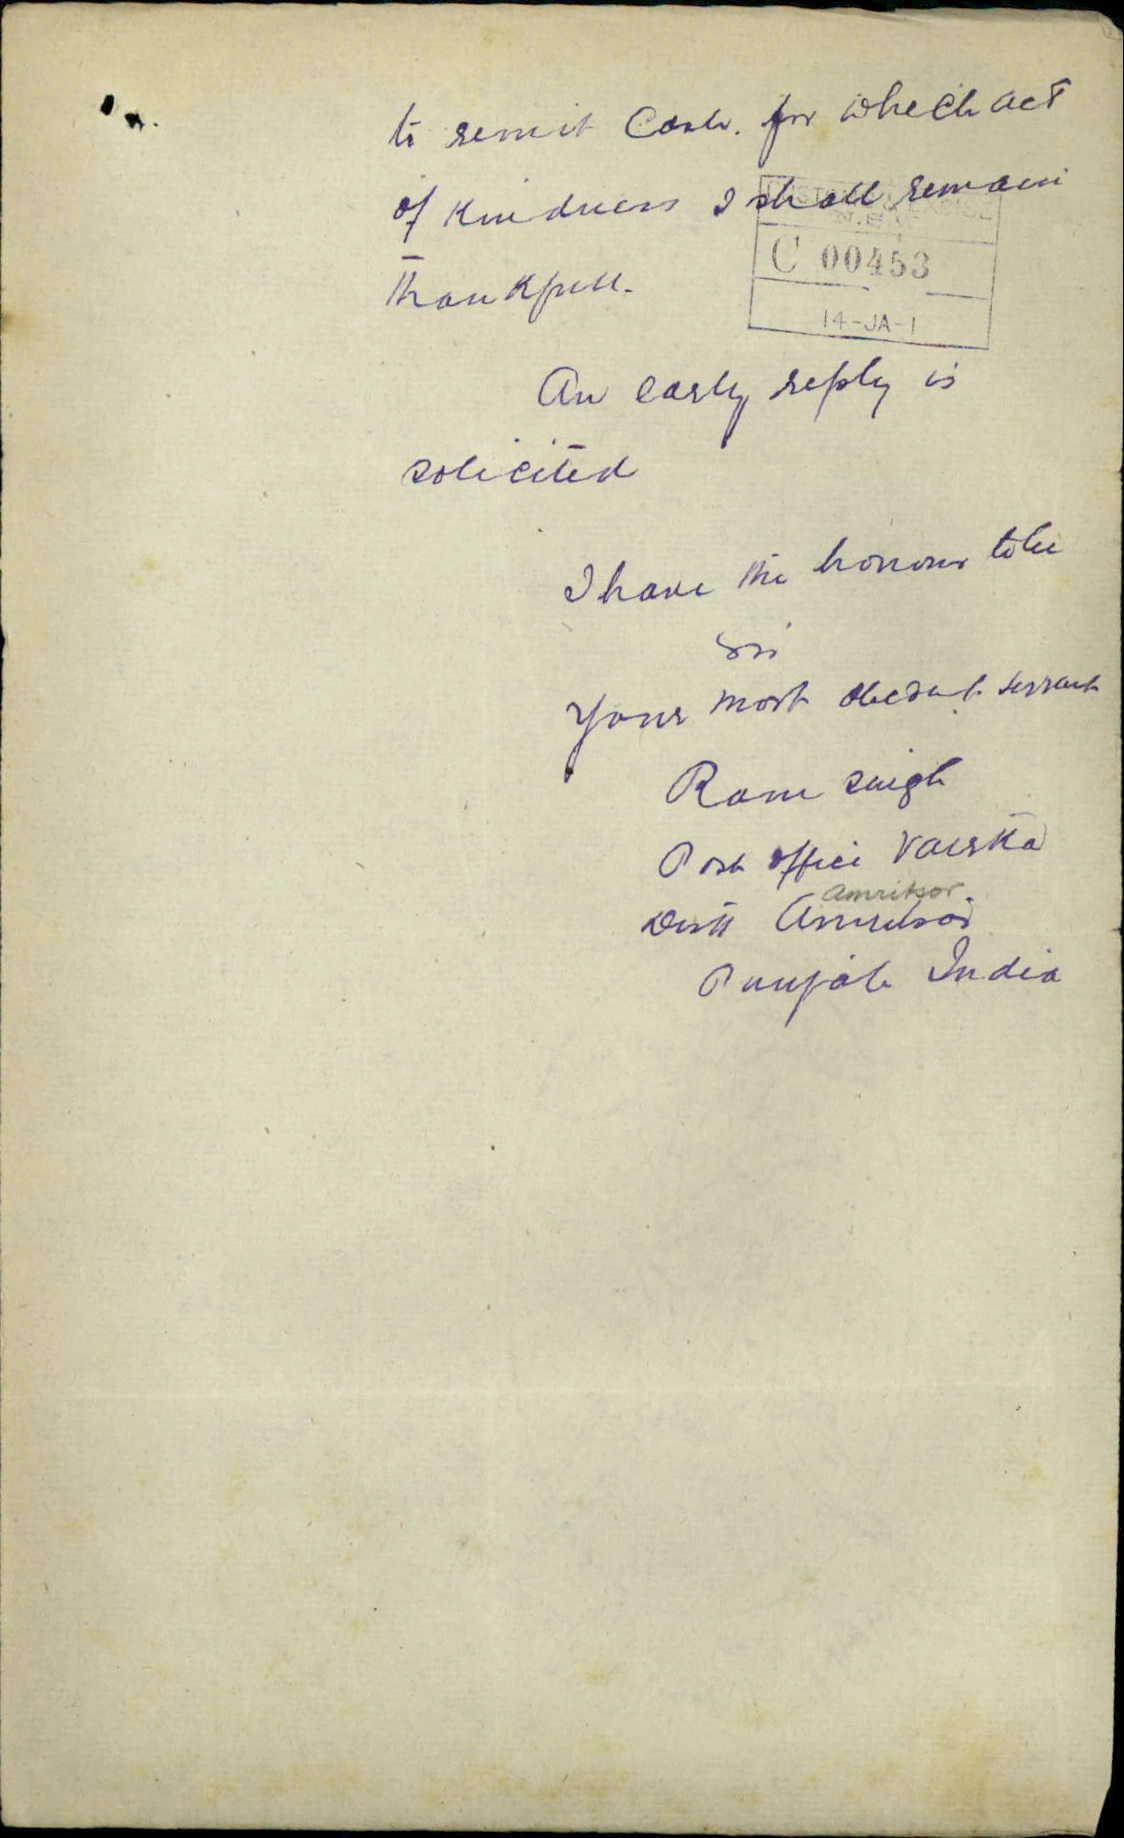 to remit Cash. for which act
of kindness I shall remain
thankfull.
C 00453
14-JA-1
An early reply is
solicited
I have the honour to be
Sir
Your most obedent servant
Ram singh
Post office Vairka
amritsar.
Distt Amritsar
Punjab India